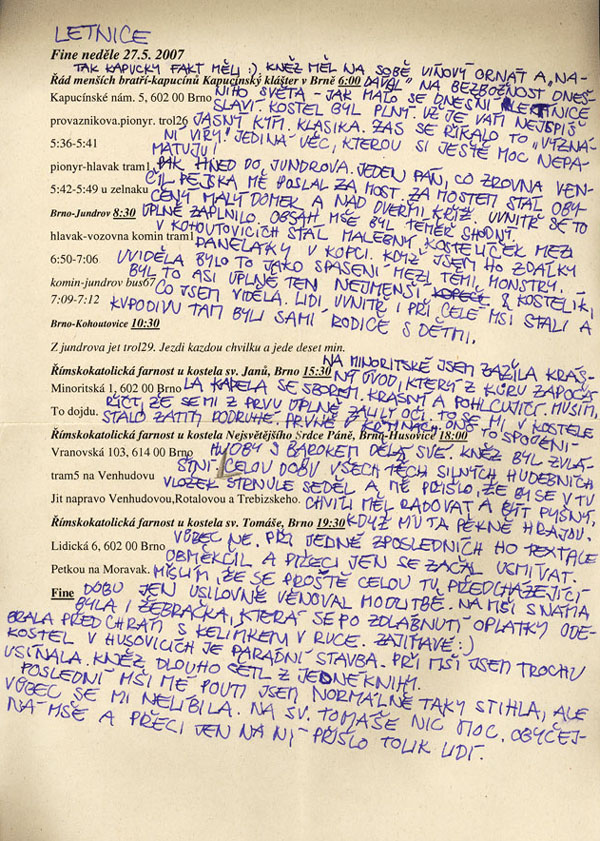 LETNICE
Fine neděle 27.5. 2007
TAK KAPUCKY FAKT MĚLI :) KNĚZ MĚL NA SOBĚ VÍNOVÝ ORNÁT A „NA-
Řád menších bratří-kapucínů Kapucínský klášter v Brně 6:00 DÁVAL" NA BEZBOŽNOST DNEŠ-
Kapucínské nám. 5, 602 00 Brno NÍHO SVĚTA - JAK MÁLO SE DNEŠNÍ LETNICE
SLAVÍ. KOSTEL BYL PLNÝ. UŽ JE VÁM NEJSPÍŠ
provaznikova.pionyr. trol26 JASNÝ KÝM. KLASIKA. ZAS SE ŘÍKALO TO „VYZNÁ-
5:36-5:41 NÍ VÍRY". JEDINÁ VĚC, KTEROU SI JEŠTĚ MOC NEPA-
MATUJU!
pionyr-hlavak tram1 PAK HNED DO JUNDROVA. JEDEN PÁN, CO ZROVNA VEN-
5:42-5:49 u zelnaku ČIL PEJSKA MĚ POSLAL ZA MOST. ZA MOSTEM STÁL OBY-
ČENÝ MALÝ DOMEK A NAD DVEŘMI KŘÍŽ. UVNITŘ SE TO
Brno-Jundrov 8:30 ÚPLNĚ ZAPLNILO. OBSAH MŠE BYL TÉMĚŘ SHODNÝ.
hlavak-vozovna komin tram1 V KOHOUTOVICÍCH STÁL MALEBNÝ KOSTELÍČEK MEZI
6:50-7:06 PANELÁKY V KOPCI. KDYŽ JSEM HO ZDÁLKY
UVIDĚLA BYLO TO JAKO SPASENÍ MEZI TĚMI MONSTRY.
komin-jundrov bus67 BYL TO ASI ÚPLNĚ TEN NEJMENŠÍ KOSTELÍK,
7:09-7:12 CO JSEM VIDĚLA. LIDI UVNITŘ I PŘI CELÉ MŠI STÁLI A
KUPODIVU TAM BYLI SAMÍ RODIČE S DĚTMI.
Brno-Kohoutovice 10:30
Z jundrova jet trol29. Jezdi kazdou chvilku a jede deset min.
NA MINORITSKÉ JSEM ZAŽILA KRÁS-
Římskokatolická farnost u kostela sv. Janů, Brno 15:30 NÝ ÚVOD, KTERÝ Z KŮRU ZAPOČA-
Minoritská 1, 602 00 Brno LA KAPELA SE SBOREM. KRÁSNÝ A POHLCUJÍCÍ. MUSÍM
ŘÍCT, ŽE SE MI Z PRVU ÚPLNĚ ZALILY OČI. TO SE MI V KOSTELE
To dojdu. STALO ZATÍM PODRUHÉ. PRVNĚ V KŘTINÁCH. ONO TO SPOJENÍ
Římskokatolická farnost u kostela Nejsvětějšího Srdce Páně, Brno-Husovice 18:00
Vranovská 103, 614 00 Brno HUDBY S BAROKEM DĚLÁ SVÉ. KNĚZ BYL ZVLÁ-
ŠTNÍ. CELOU DOBU VŠECH TĚCH SILNÝCH HUDEBNÍCH
tram5 na Venhudovu VLOŽEK STRNULE SEDĚL A MĚ PŘIŠLO, ŽE BY SE V TU
Jit napravo Venhudovou,Rotalovou a Trebizskeho. CHVÍLI MĚL RADOVAT A BÝT PYŠNÝ,
Římskokatolická farnost u kostela sv. Tomáše, Brno 19:30 KDYŽ MU TA PĚKNĚ HRAJOU.
Lidická 6, 602 00 Brno VŮBEC NE. PŘI JEDNÉ Z POSLEDNÍCH HO TEXTÁLE
OBMĚKČIL A PŘECI JEN SE ZAČAL USMÍVAT.
Petkou na Moravak. MYSLÍM, ŽE SE PROSTĚ CELOU TU PŘEDCHÁZEJÍCÍ
Fine DOBU JEN USILOVNĚ VĚNOVAL MODLITBĚ. NA MŠI S NÁMA
BYLA I ŽEBRAČKA, KTERÁ SE PO ZDLÁBNUTÍ OPLATKY ODE-
BRALA PŘED CHRÁM S KELÍMKEM V RUCE. ZAJÍMAVÉ :)
KOSTEL V HUSOVICÍCH JE PARÁDNÍ STAVBA. PŘI MŠI JSEM TROCHU
USÍNALA. KNĚZ DLOUHO ČETL Z JEDNÉ KNIHY.
POSLEDNÍ MŠI MÉ POUTI JSEM NORMÁLNĚ TAKY STIHLA, ALE
VŮBEC SE MI NELÍBILA. NA SV. TOMÁŠE NIC MOC. OBYČEJ-
NÁ MŠE A PŘECI JEN NA NÍ PŘIŠLO TOLIK LIDÍ.